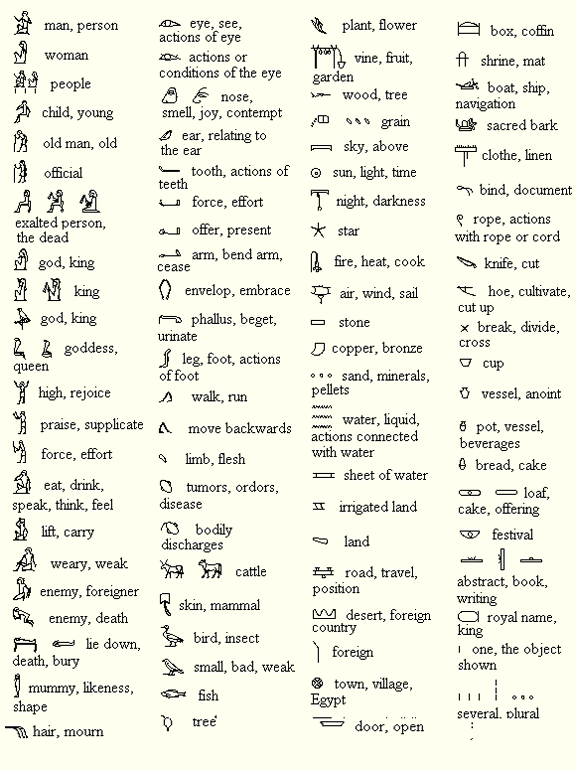 man, person
woman
people
child, young
old man, old
official
exalted person,
the dead
god, king
king
god, king
goddess,
queen
high, rejoice
praise, supplicate
force, effort
eat, drink,
speak, think, feel
lift, carry
weary, weak
enemy, foreigner
enemy, death
lie down,
death, bury
mummy, likeness,
shape
hair, mourn
eye, see,
actions of eye
actions or
conditions of the eye
nose,
smell, joy, contempt
ear, relating to
the ear
tooth, actions of
teeth
force, effort
offer, present
arm, bend arm,
cease
envelop, embrace
phallus, beget,
urinate
leg, foot, actions
of foot
walk, run
move backwards
limb, flesh
tumors, ordors,
disease
bodily
discharges
cattle
skin, mammal
bird, insect
small, bad, weak
fish
tree
plant, flower
vine, fruit,
garden
wood, tree
grain
sky, above
sun, light, time
night, darkness
star
fire, heat, cook
air, wind, sail
stone
copper, bronze
sand, minerals,
pellets
water, liquid,
actions connected
with water
sheet of water
irrigated land
land
road, travel,
position
desert, foreign
country
foreign
town, village,
Egypt
door, open
box, coffin
shrine, mat
boat, ship,
navigation
sacred bark
clothe, linen
bind, document
rope, actions
with rope or cord
knife, cut
hoe, cultivate,
cut up
break, divide,
cross
cup
vessel, anoint
pot, vessel,
beverages
bread, cake
loaf,
cake, offering
festival
abstract, book,
writing
royal name,
king
one, the object
shown
several, plural